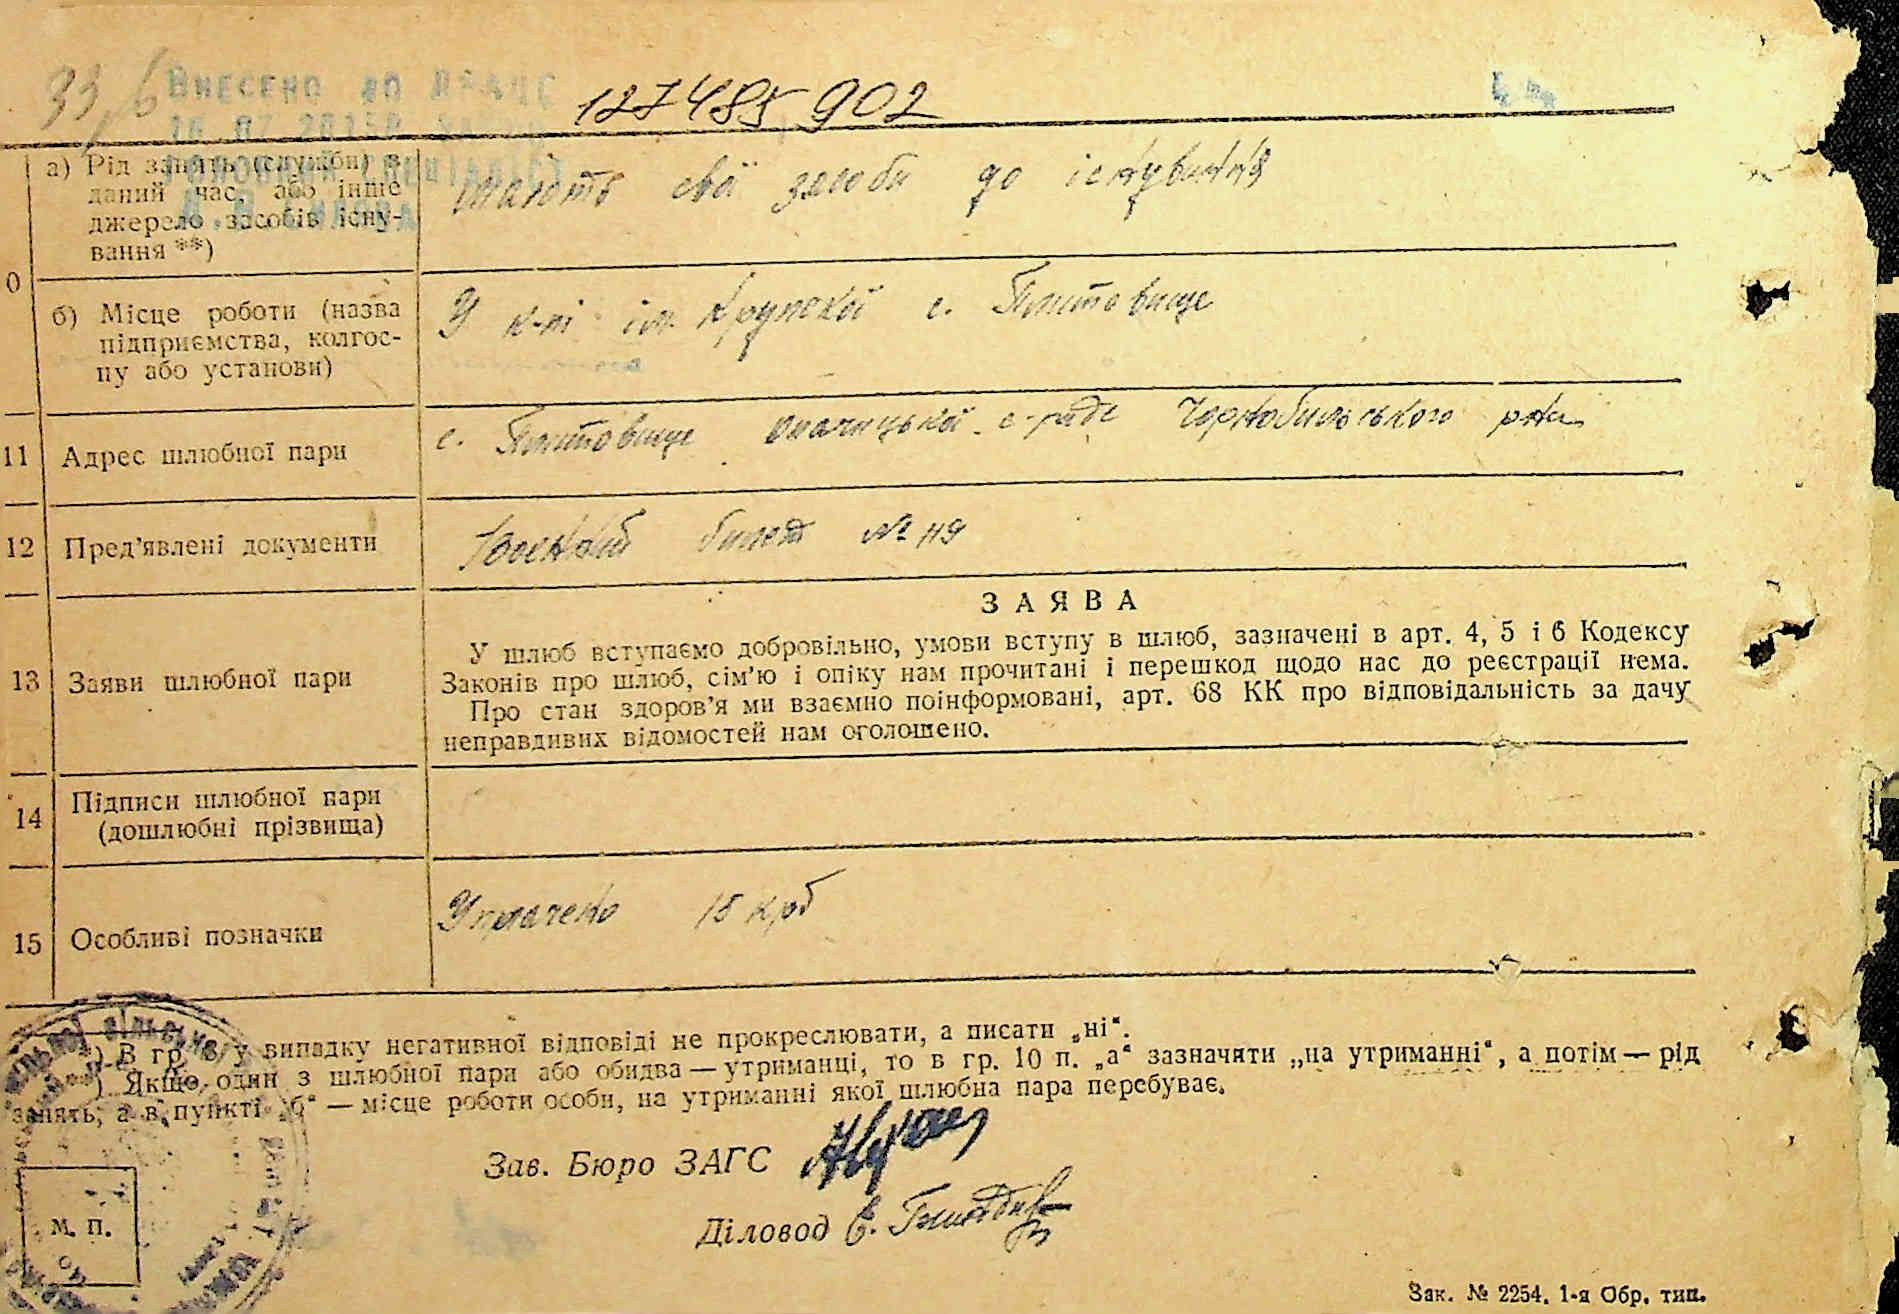 33/6
Внесено до
127485902
а) Рід занять (служби) в
даний час, або інше
джерело засобів існу-
вання **)
мають свої засоби до існування
0
б) Місце роботи (назва
підприємства, колгос-
пу або установи)
У к-пі ім. Крупской с. Плитовище
11 Адрес шлюбної пари
с. Плитовище опачицької с-ради Чорнобильського р-на
12 Пред'явлені документи
Военный билет № 119
ЗАЯВА
13 Заяви шлюбної пари
У шлюб вступаємо добровільно, умови вступу в шлюб, зазначені в арт. 4, 5 і 6 Кодексу
Законів про шлюб, сім'ю і опіку нам прочитані і перешкод щодо нас до реєстрації нема.
Про стан здоров'я ми взаємно поінформовані, арт. 68 КК про відповідальність за дачу
неправдивих відомостей нам оголошено.
14 Підписи шлюбної пари
(дошлюбні прізвища)
15 Особливі позначки
Уплачено 15 крб
*) В гр. 8 у випадку негативної відповіді не прокреслювати, а писати „ні“.
**) Якщо один з шлюбної пари або обидва — утриманці, то в гр. 10 п. „а“ зазначяти „на утриманні“, а потім — рід
занять, а в пункті „б“ — місце роботи особи, на утриманні якої шлюбна пара перебуває.
Зав. Бюро ЗАГС
Діловод Є.
М. П.
Зак. № 2254. 1-я Обр. тип.